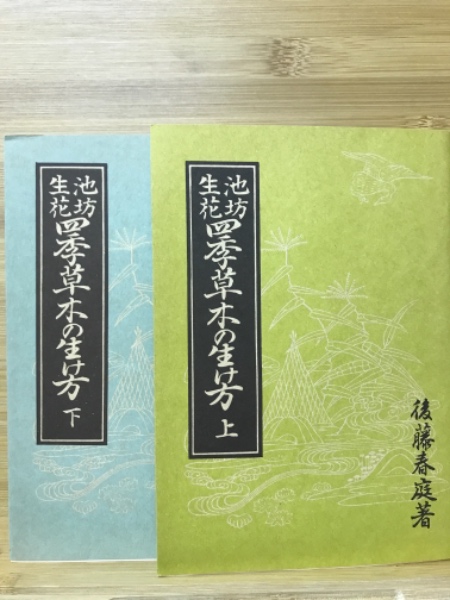 池坊
生花
四季草木の生け方
上
後藤春庭著
池坊
生花
四季草木の生け方
下